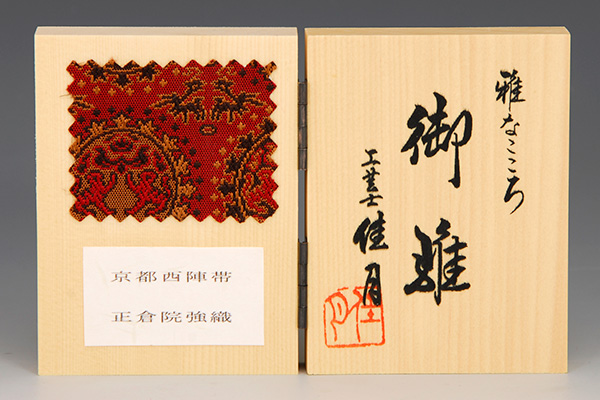 京都西陣帯
正倉院強織
雅なここち
御雛
工芸士 佳月